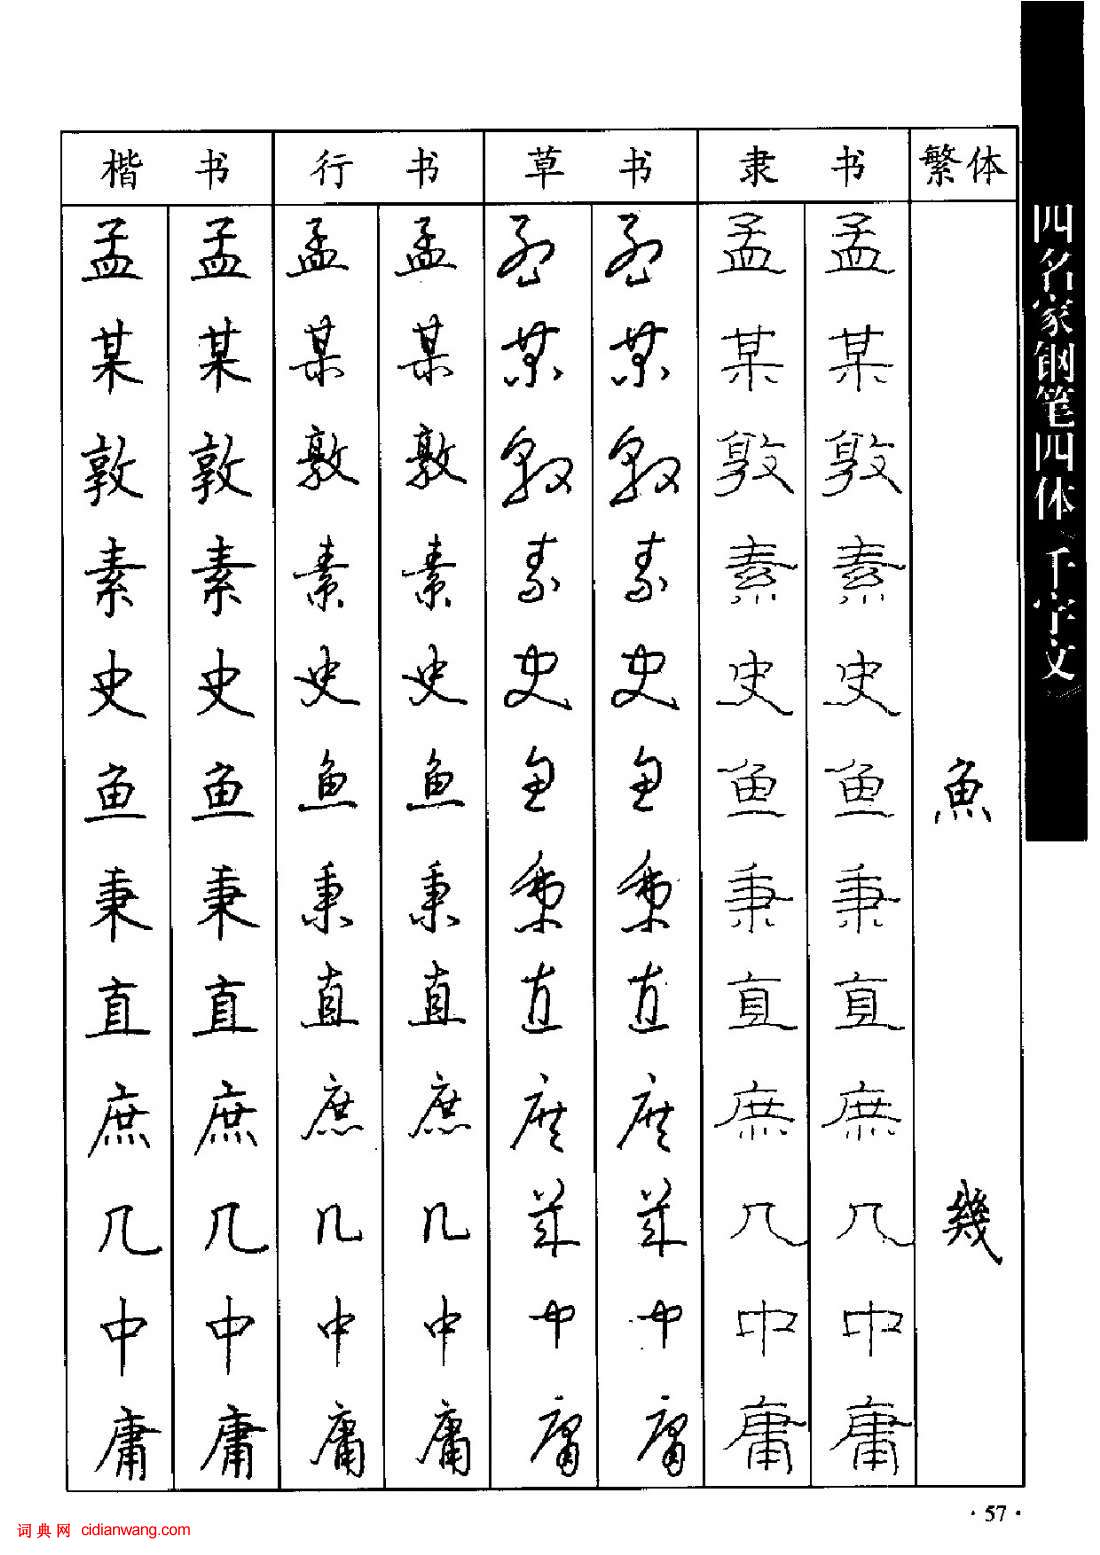 楷书 行书 草书 隶书 繁体
孟 孟 孟 孟 孟 孟 孟 孟
某 某 某 某 某 某 某 某
敦 敦 敦 敦 敦 敦 敦 敦
素 素 素 素 素 素 素 素
史 史 史 史 史 史 史 史
鱼 鱼 鱼 鱼 鱼 鱼 鱼 鱼 魚
秉 秉 秉 秉 秉 秉 秉 秉
直 直 直 直 直 直 直 直
庶 庶 庶 庶 庶 庶 庶 庶
几 几 几 几 幾 幾 几 几 幾
中 中 中 中 中 中 中 中
庸 庸 庸 庸 庸 庸 庸 庸
四名家钢笔四体《千字文》
·57·
词典网 cidianwang.com